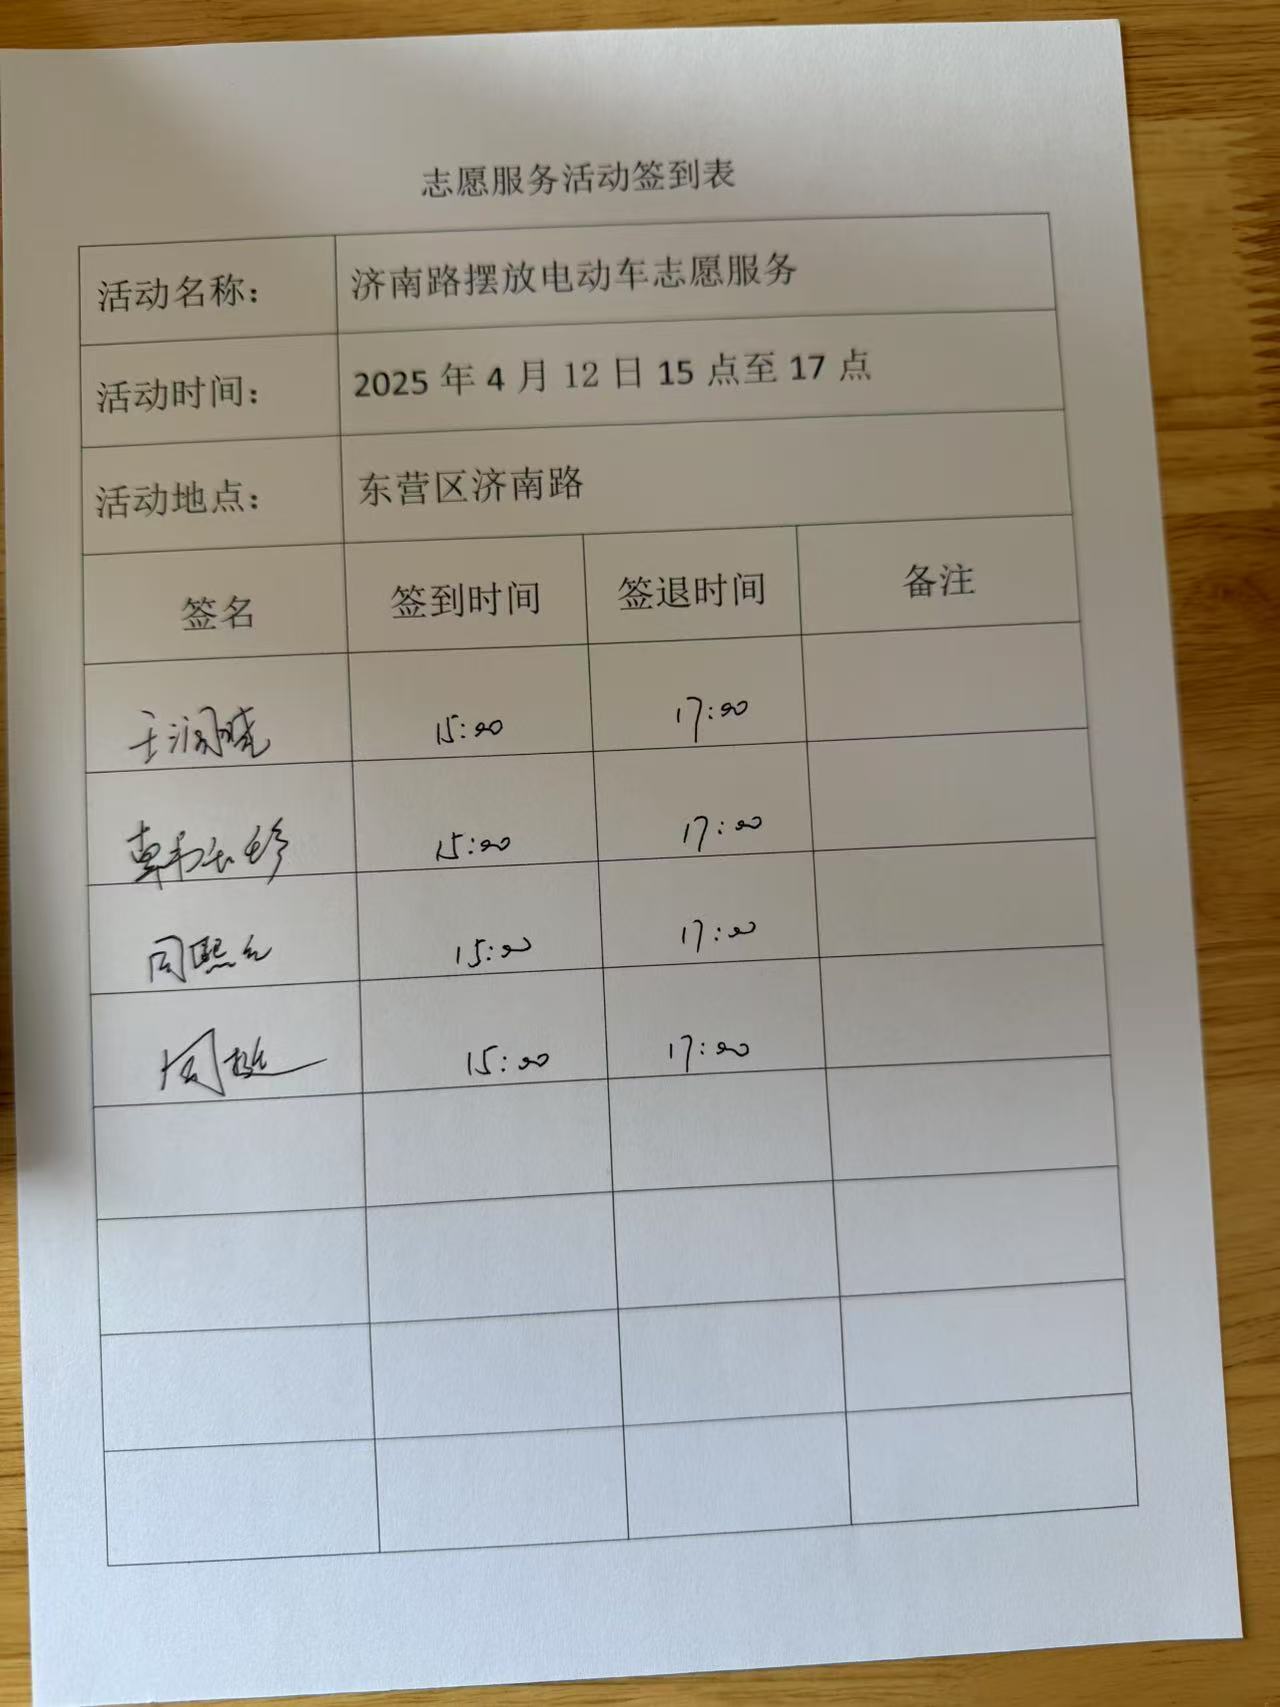 志愿服务活动签到表
活动名称： 济南路摆放电动车志愿服务
活动时间： 2025 年 4 月 12 日 15 点至 17 点
活动地点： 东营区济南路
签名 签到时间 签退时间 备注
15:00 17:00
15:00 17:00
周熙 15:00 17:00
周挺 15:00 17:00